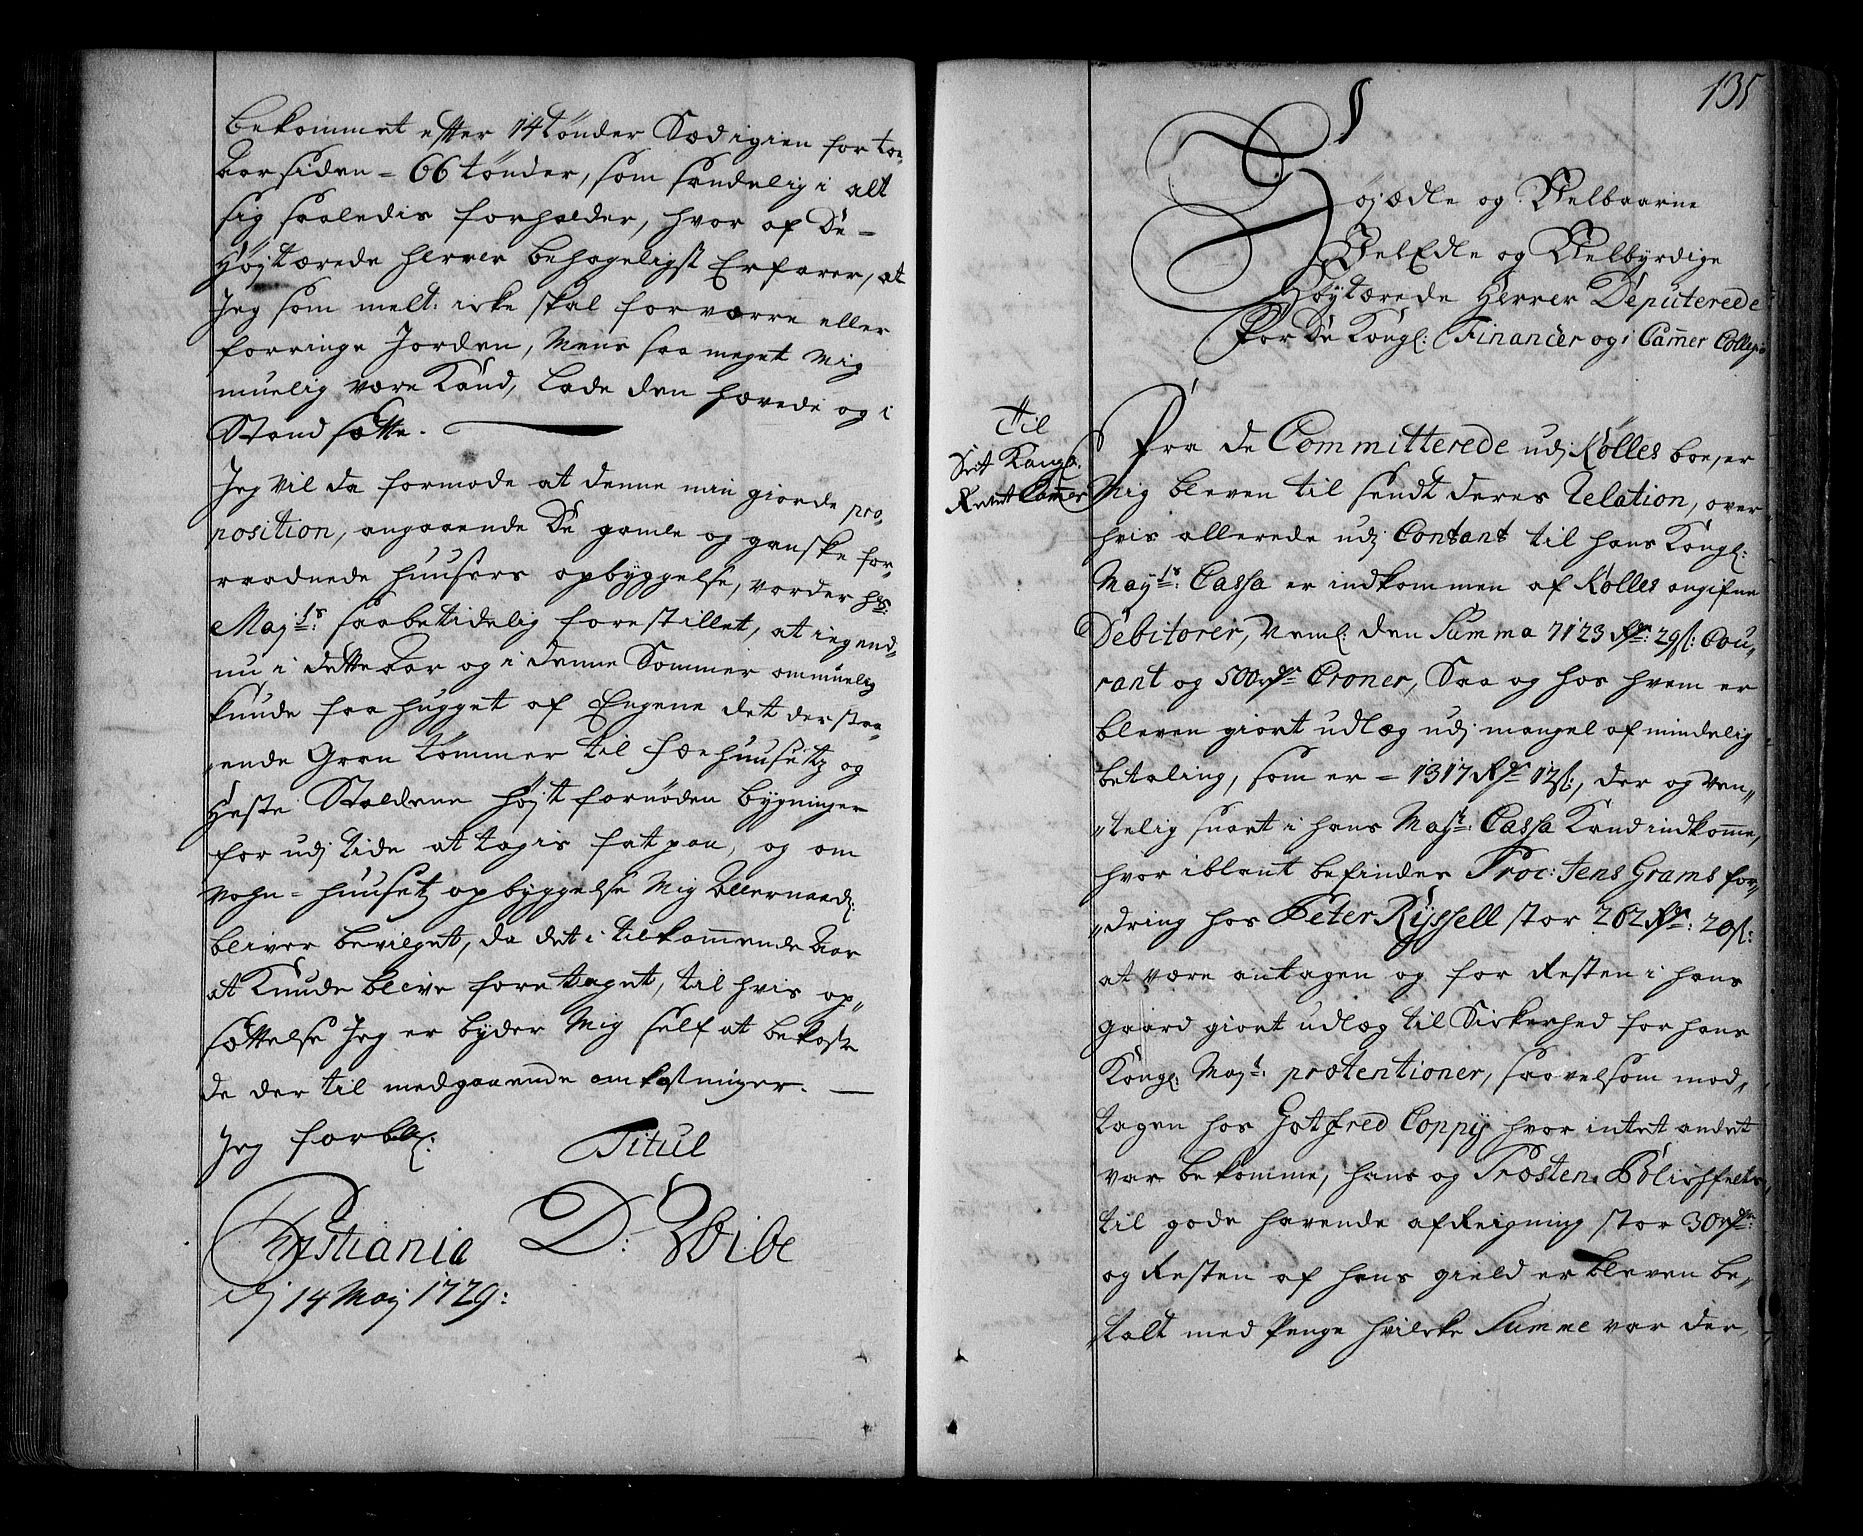 bekommet efter 14 tønder Sæd igien for toe
Aar siden = 66 tønder, som sandelig i alt
sig saaledis forholder, hvor af De =
Høytærede Herrer behageligst Erfarer, at
Jeg som melt: icke skal forværre eller
forringe Jorden, Mens saa meget Mig
muelig være Kand, lade den hævede og i
Stand sætte.
Jeg vil da formode at denne min giorde pro„
position, angaaende De gamle og ganske for„
raadnede huusers opbyggelse, vorder hs:
Majts: saa betidelig forestillet, at i igend„
nu i dette Aar og i denne Sommer ommuelig
kunde faa hugget af Engene det der staa„
„ende Gran tømmer til Fæehuusetz og
Heste Staldene højt fornøden bygninger
for udj tide at tages fat paa, og om
vohn = huusetz opbyggelse Mig Allernaadl:
bliver bevilget, da det i tilkommende Aar
at Kunde blive foretaget, til hvis op„
sættelse Jeg er byder Mig self at bekoste
de der til medgaaende omkostninger. —
Jeg forbl: Titul
Christiania D: Wibe
dj 14 Maj 1729:
135
Højædle og Velbaarne
VelEdle og Velbyrdige
Høytærede Herrer Deputerede
For De Kongl: Financer og Cammer Collegio
Til
Det Kongl.
Rente Cammer
Fra de Committerede udj Kølles boe, er
Mig bleven til sendt deres Relation, over
hvis allerede udj Contant til hans Kongl:
Mayts: Cassa er indkommen af Kølles angifne
Debitorer, Neml: den Summa 7123 Rdr: 29 s: Cou„
rant og 500 rdr Croner, Saa og hos hvem er
bleven giort udlæg udj mangel af mindelig
betaling, som er = 1317 Rdr 12 s:, der og ven„
„telig snart i hans Mayts: Cassa Kand indkomme,
hvor iblant befindes Proc: Jens Grams for„
„dring hos Peter Ryssell stor 262 Rdr: 20 s:
at være antagen og for Resten i hans
gaard giort udlæg til Sickerhed for hans
Kongl: Mayts: prætentioner, saavelsom mod„
tagen hos Gotfred Coppy hvor intet andet
var bekomme, hans og Prosten Blichfelts
til gode havende afReigning stor 30 rdr:
og Resten af hans gield er bleven be„
„talt med Penge hvilcke Summe var der,